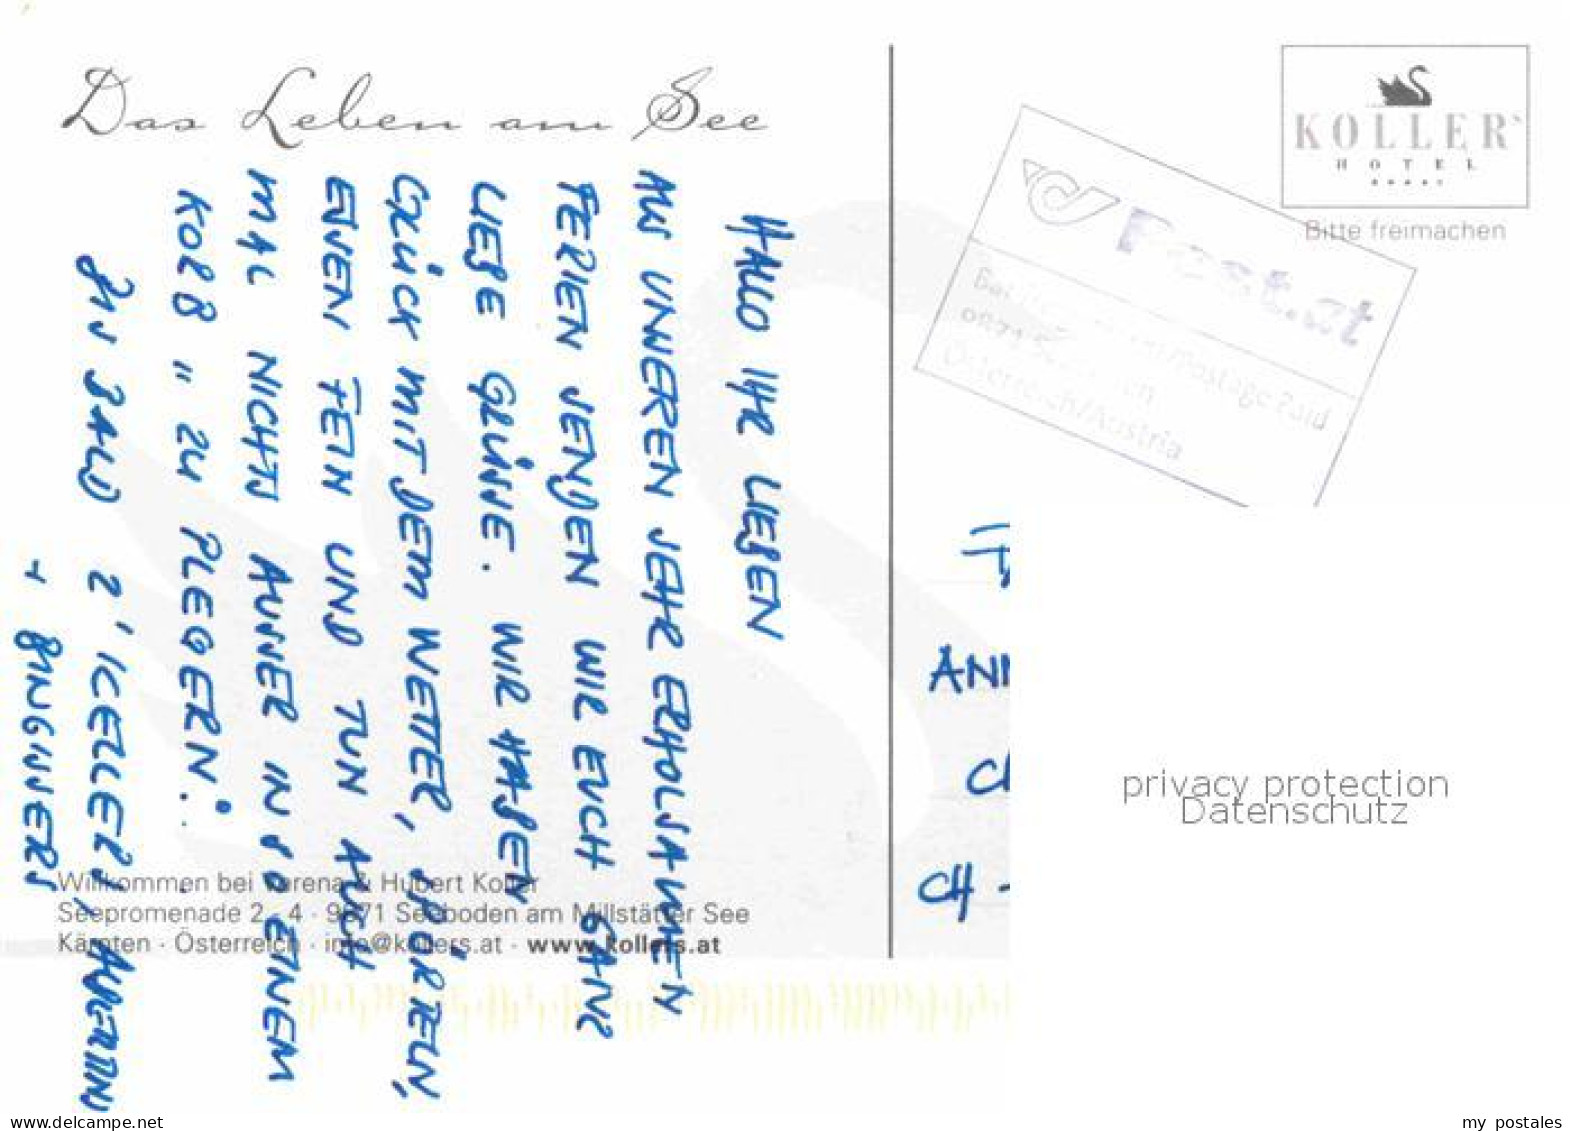 Das Leben am See
HALLO IHR LIEBEN
AUS UNSEREN SEHR ERHOLSAMEN
FERIEN SENDEN WIR EUCH GANZ
LIEBE GRÜSSE. WIR HABEN
GLÜCK MIT DEM WETTER, SPÖRTELN,
ESSEN FEIN UND TUN AUCH
MAL NICHTS AUSSER IN SO EINEM
KORB " ZU PLEGERN".
BIS BALD 2' KELLERS,
+ BINGISSERS
Willkommen bei Verena & Hubert Koller
Seepromenade 2 - 4 · 9871 Seeboden am Millstätter See
Kärnten · Österreich · info@kollers.at · www.kollers.at
KOLLER`
HOTEL
Bitte freimachen
Post.at
Postage Paid
Österreich/Austria
ANN
CH -
privacy protection
Datenschutz
www.ansichtskartenversand.com
my_postales